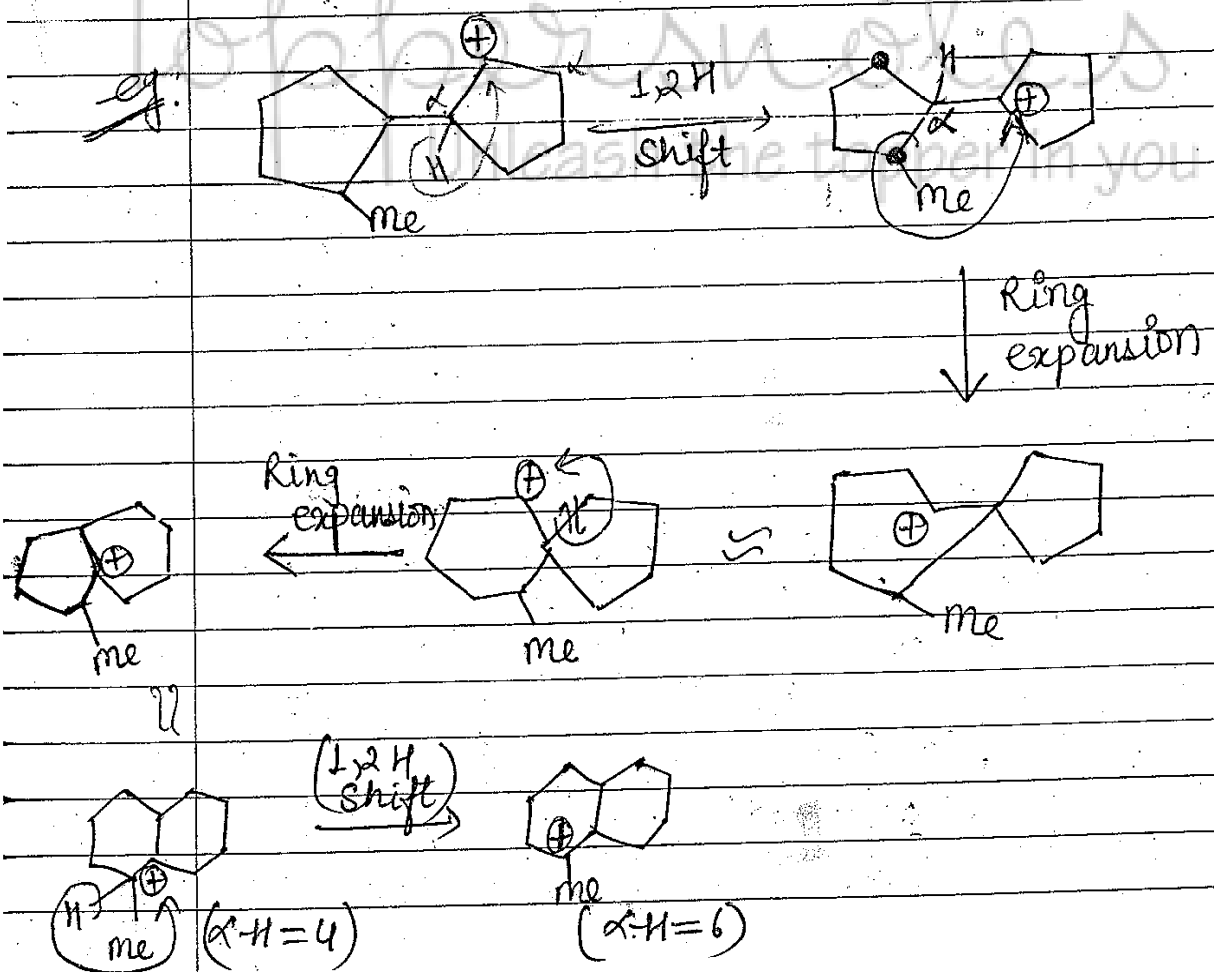 toppersnotes
Unleash the topper in you
eg:
⊕
α
α
H
Me
1,2 H
shift
H
⊕
α
Me
Ring
expansion
Ring
expansion
⊕
Me
⊕
H
Me
⊕
Me
(1,2 H
shift)
⊕
H
Me
(α-H=4)
⊕
Me
(α-H=6)